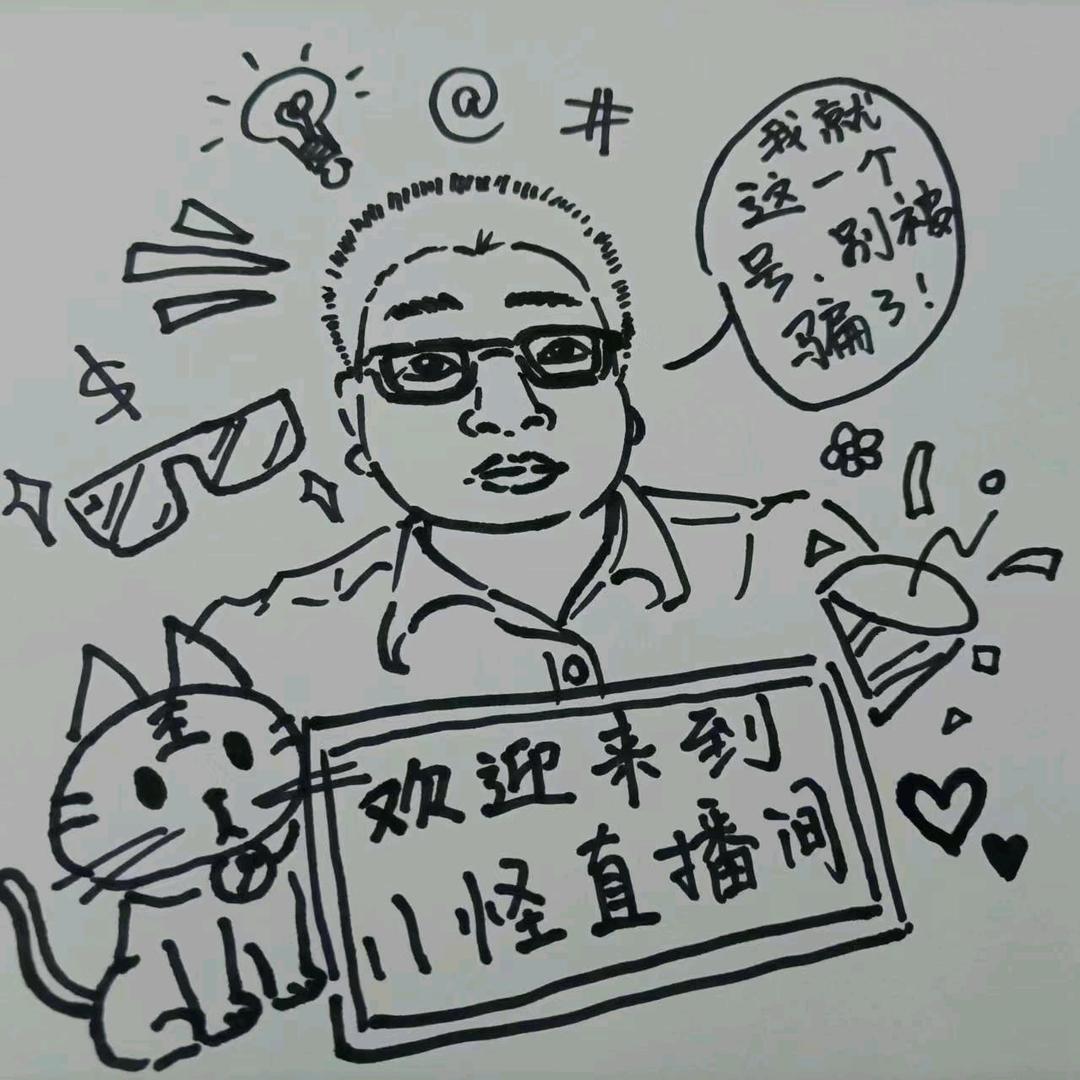 @ #
我就
这一个
号、别被
骗了!
$
欢迎来到
怪直播间